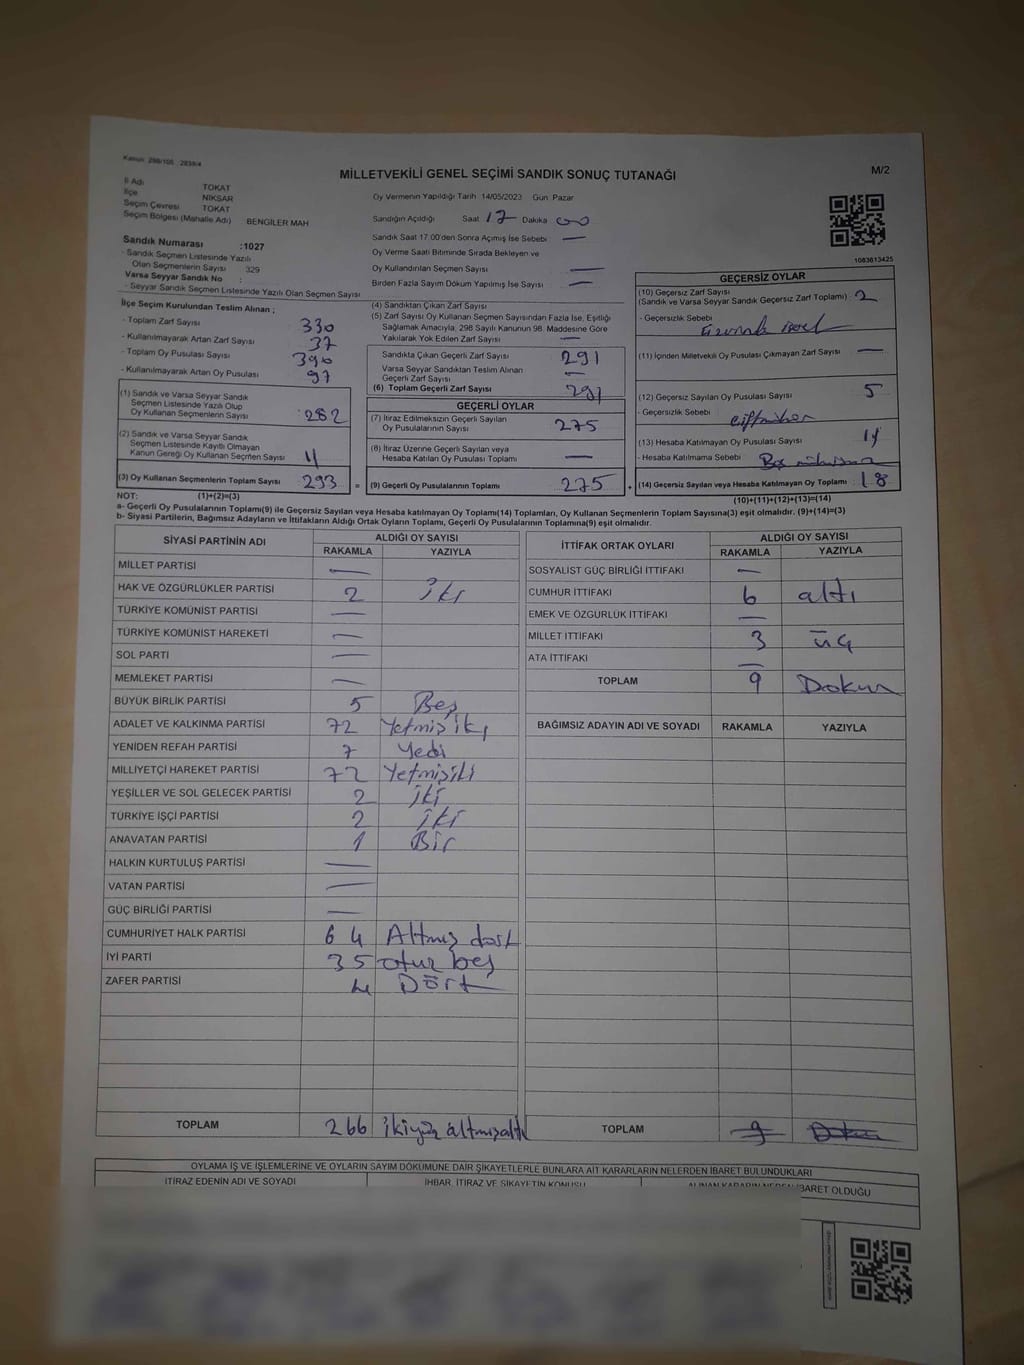 Kanun: 298/105 , 2839/4
MİLLETVEKİLİ GENEL SEÇİMİ SANDIK SONUÇ TUTANAĞI
M/2
İl Adı TOKAT
İlçe NİKSAR
Seçim Çevresi TOKAT
Seçim Bölgesi (Mahalle Adı) BENGİLER MAH
Oy Vermenin Yapıldığı Tarih 14/05/2023 Gün Pazar
Sandığın Açıldığı Saat 17 Dakika 00
Sandık Saat 17:00'den Sonra Açımış İse Sebebi —
Oy Verme Saati Bitiminde Sırada Bekleyen ve
Oy Kullandırılan Seçmen Sayısı —
Birden Fazla Sayım Döküm Yapılmış İse Sayısı —
1083613425
Sandık Numarası :1027
- Sandık Seçmen Listesinde Yazılı
Olan Seçmenlerin Sayısı 329
Varsa Seyyar Sandık No :
- Seyyar Sandık Seçmen Listesinde Yazılı Olan Seçmen Sayısı
İlçe Seçim Kurulundan Teslim Alınan ;
- Toplam Zarf Sayısı 330
- Kullanılmayarak Artan Zarf Sayısı 37
- Toplam Oy Pusulası Sayısı 390
- Kullanılmayarak Artan Oy Pusulası 97
(1) Sandık ve Varsa Seyyar Sandık
Seçmen Listesinde Yazılı Olup
Oy Kullanan Seçmenlerin Sayısı : 282
(2) Sandık ve Varsa Seyyar Sandık
Seçmen Listesinde Kayıtlı Olmayan
Kanun Gereği Oy Kullanan Seçmen Sayısı 11
(3) Oy Kullanan Seçmenlerin Toplam Sayısı 293
(4) Sandıktan Çıkan Zarf Sayısı
(5) Zarf Sayısı Oy Kullanan Seçmen Sayısından Fazla İse, Eşitliği
Sağlamak Amacıyla, 298 Sayılı Kanunun 98. Maddesine Göre
Yakılarak Yok Edilen Zarf Sayısı —
Sandıkta Çıkan Geçerli Zarf Sayısı 291
Varsa Seyyar Sandıktan Teslim Alınan
Geçerli Zarf Sayısı —
(6) Toplam Geçerli Zarf Sayısı 291
GEÇERLİ OYLAR
(7) İtiraz Edilmeksizin Geçerli Sayılan
Oy Pusulalarının Sayısı 275
(8) İtiraz Üzerine Geçerli Sayılan veya
Hesaba Katılan Oy Pusulası Toplamı —
= (9) Geçerli Oy Pusulalarının Toplamı 275
GEÇERSİZ OYLAR
(10) Geçersiz Zarf Sayısı
(Sandık ve Varsa Seyyar Sandık Geçersiz Zarf Toplamı) : 2
- Geçersizlik Sebebi
(11) İçinden Milletvekili Oy Pusulası Çıkmayan Zarf Sayısı —
(12) Geçersiz Sayılan Oy Pusulası Sayısı 5
- Geçersizlik Sebebi
(13) Hesaba Katılmayan Oy Pusulası Sayısı 11
- Hesaba Katılmama Sebebi
+ (14) Geçersiz Sayılan veya Hesaba Katılmayan Oy Toplamı 18
NOT: (1)+(2)=(3)
(10)+(11)+(12)+(13)=(14)
a- Geçerli Oy Pusulalarının Toplamı(9) ile Geçersiz Sayılan veya Hesaba katılmayan Oy Toplamı(14) Toplamları, Oy Kullanan Seçmenlerin Toplam Sayısına(3) eşit olmalıdır. (9)+(14)=(3)
b- Siyasi Partilerin, Bağımsız Adayların ve İttifakların Aldığı Ortak Oyların Toplamı, Geçerli Oy Pusulalarının Toplamına(9) eşit olmalıdır.
SİYASİ PARTİNİN ADI ALDIĞI OY SAYISI
RAKAMLA YAZIYLA
MİLLET PARTİSİ —
HAK VE ÖZGÜRLÜKLER PARTİSİ 2 iki
TÜRKİYE KOMÜNİST PARTİSİ —
TÜRKİYE KOMÜNİST HAREKETİ —
SOL PARTİ —
MEMLEKET PARTİSİ —
BÜYÜK BİRLİK PARTİSİ 5 Beş
ADALET VE KALKINMA PARTİSİ 72 Yetmiş iki
YENİDEN REFAH PARTİSİ 7 Yedi
MİLLİYETÇİ HAREKET PARTİSİ 72 Yetmişiki
YEŞİLLER VE SOL GELECEK PARTİSİ 2 iki
TÜRKİYE İŞÇİ PARTİSİ 2 iki
ANAVATAN PARTİSİ 1 Bir
HALKIN KURTULUŞ PARTİSİ —
VATAN PARTİSİ —
GÜÇ BİRLİĞİ PARTİSİ —
CUMHURİYET HALK PARTİSİ 64 Altmış dört
İYİ PARTİ 35 otuz beş
ZAFER PARTİSİ 4 Dört
TOPLAM 266 ikiyüz altmışaltı
İTTİFAK ORTAK OYLARI ALDIĞI OY SAYISI
RAKAMLA YAZIYLA
SOSYALİST GÜÇ BİRLİĞİ İTTİFAKI —
CUMHUR İTTİFAKI 6 altı
EMEK VE ÖZGÜRLÜK İTTİFAKI —
MİLLET İTTİFAKI 3 üç
ATA İTTİFAKI —
TOPLAM 9 Dokuz
BAĞIMSIZ ADAYIN ADI VE SOYADI RAKAMLA YAZIYLA
TOPLAM 9 Dokuz
OYLAMA İŞ VE İŞLEMLERİNE VE OYLARIN SAYIM DÖKÜMÜNE DAİR ŞİKAYETLERLE BUNLARA AİT KARARLARIN NELERDEN İBARET BULUNDUKLARI
İTİRAZ EDENİN ADI VE SOYADI
İHBAR, İTİRAZ VE ŞİKAYETİN KONUSU
ALINAN KARARIN NEDEN İBARET OLDUĞU